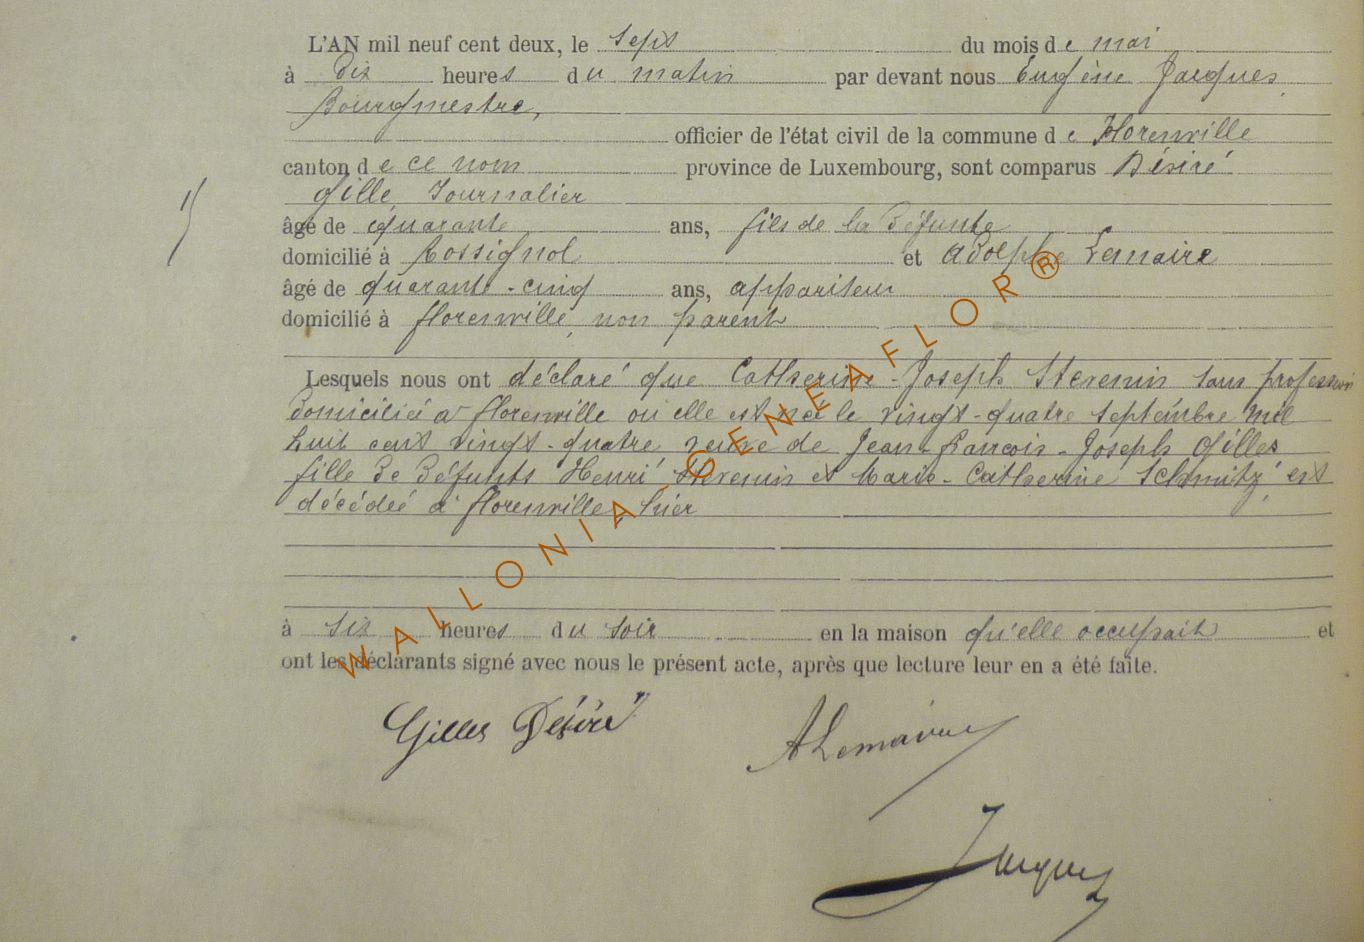 L'AN mil neuf cent deux, le sept du mois de mai
à dix heures du matin par devant nous Eugène Jacques
Bourgmestre,
officier de l'état civil de la commune de Florenville
canton de ce nom province de Luxembourg, sont comparus Désiré
Gille, Journalier
âgé de quarante ans, fils de la défunte
domicilié à Rossignol et Adolphe Lemaire
âgé de quarante-cinq ans, appariteur
domicilié à florenville, non parent
Lesquels nous ont déclaré que Catherine-Joseph Stevenin sans profession
domiciliée à florenville où elle est née le vingt-quatre septembre mil
huit cent vingt-quatre, veuve de Jean-francois-Joseph Gilles
fille de défunts Henri Stevenin et Marie-Catherine Schmitz est
décédée à florenville, hier
à six heures du soir en la maison qu'elle occupait et
ont les déclarants signé avec nous le présent acte, après que lecture leur en a été faite.
Gilles Désiré
ALemaire
Jacques
WALLONIA-GENEAFLOR®